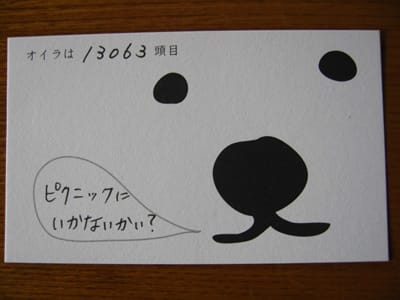 オイラは 13063 頭目
ピクニックに
いかないかい?